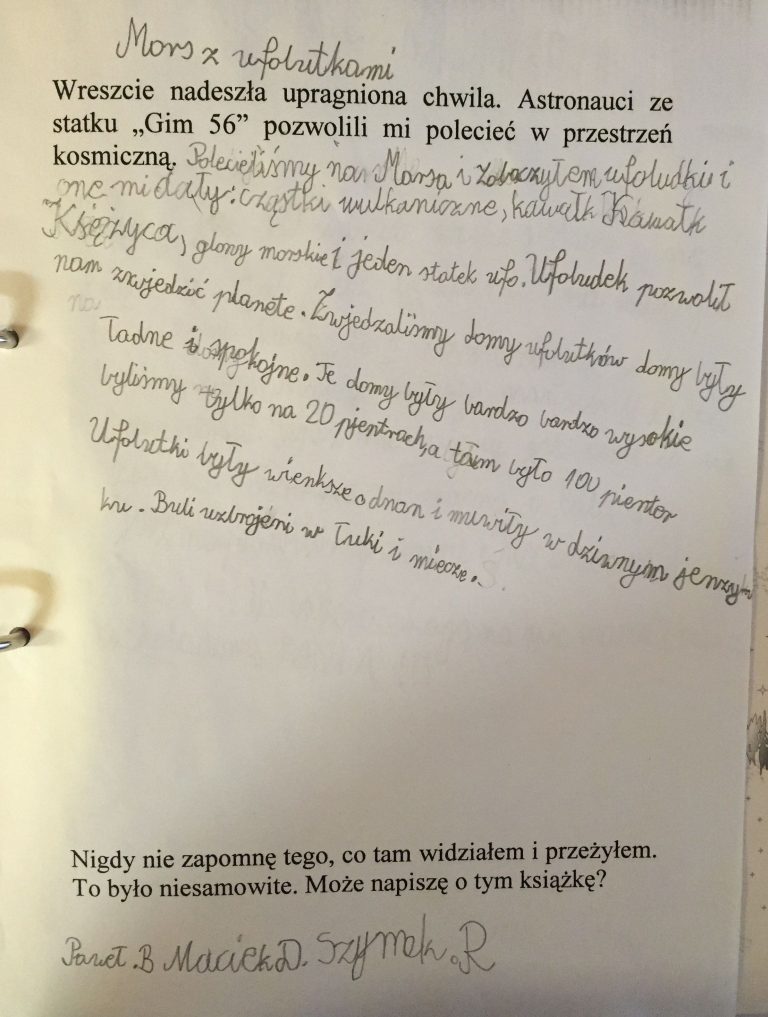 Mors z ufolutkami
Wreszcie nadeszła upragniona chwila. Astronauci ze
statku „Gim 56” pozwolili mi polecieć w przestrzeń
kosmiczną. Polecieliśmy na Marsa i zobaczyłem ufoludki i
one mi dały: cząstki wulkaniczne, kawałk Kawałk
Księżyca, glony morskie i jeden statek ufo. Ufoludek pozwolił
nam zwjedzić planete. Zwjedzaliśmy domy ufolutków domy były
ładne i spokojne. Te domy były bardzo bardzo wysokie
byliśmy tylko na 20 pjentrach, a tam było 100 pienter
Ufolutki były wienksze odnan i muwiły w dziwnym jenzyku
ku. Buli uzbrojeni w łuki i miecze.
Nigdy nie zapomnę tego, co tam widziałem i przeżyłem.
To było niesamowite. Może napiszę o tym książkę?
Paweł.B Maciek D. Szymek.R